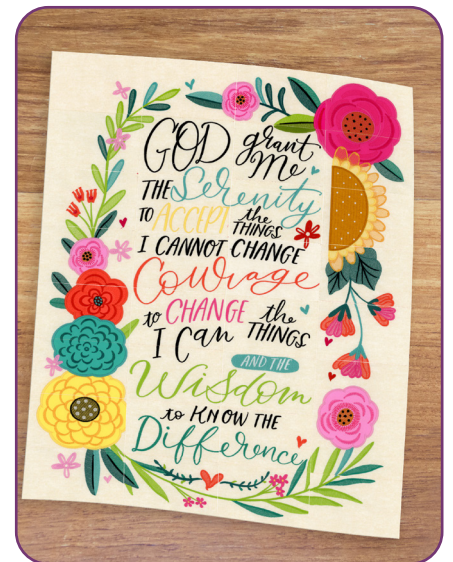 GOD grant
me
THE Serenity
TO ACCEPT the THINGS
I CANNOT CHANGE
Courage
to CHANGE the
I Can THINGS
AND THE
Wisdom
to KNOW THE
Difference